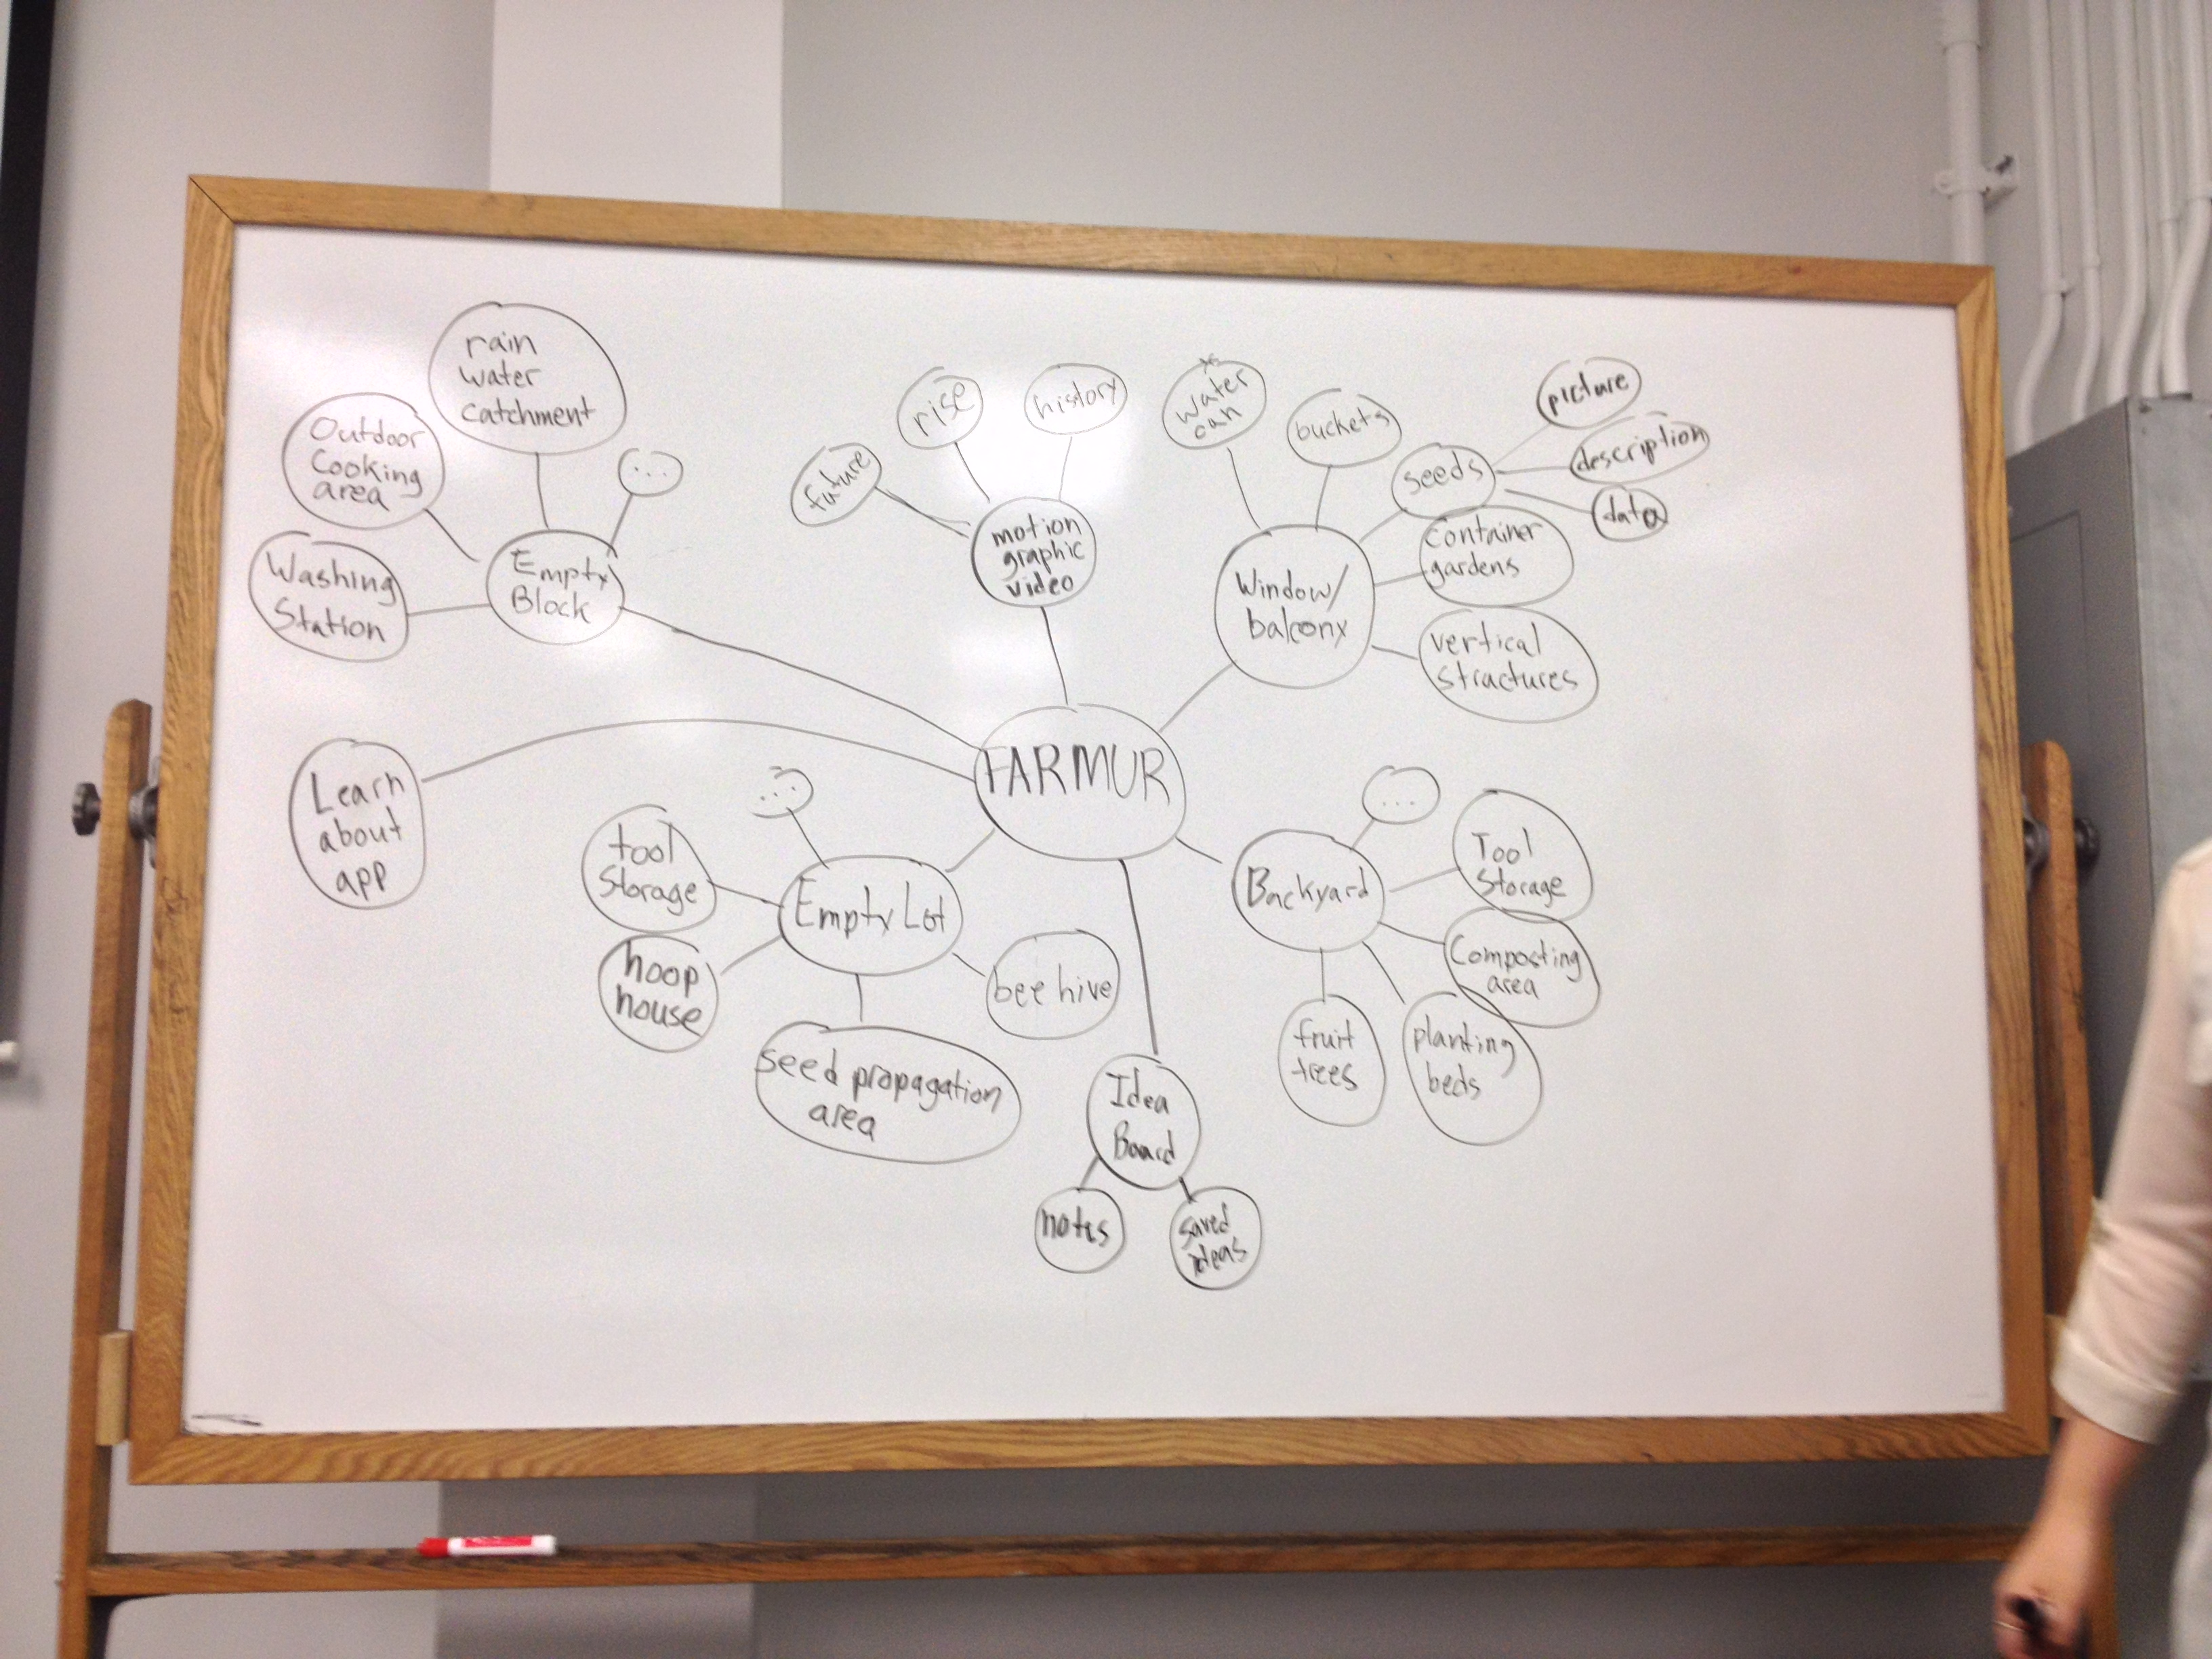 rain
water
catchment
Outdoor
Cooking
area
...
Washing
Station
Empty
Block
future
rise
history
motion
graphic
video
water
can
buckets
seeds
picture
description
data
Container
gardens
Window/
balcony
vertical
structures
FARMUR
Learn
about
app
...
tool
Storage
Empty Lot
hoop
house
bee hive
seed propagation
area
...
Backyard
Tool
Storage
Composting
area
fruit
trees
planting
beds
Idea
Board
notes
saved
ideas